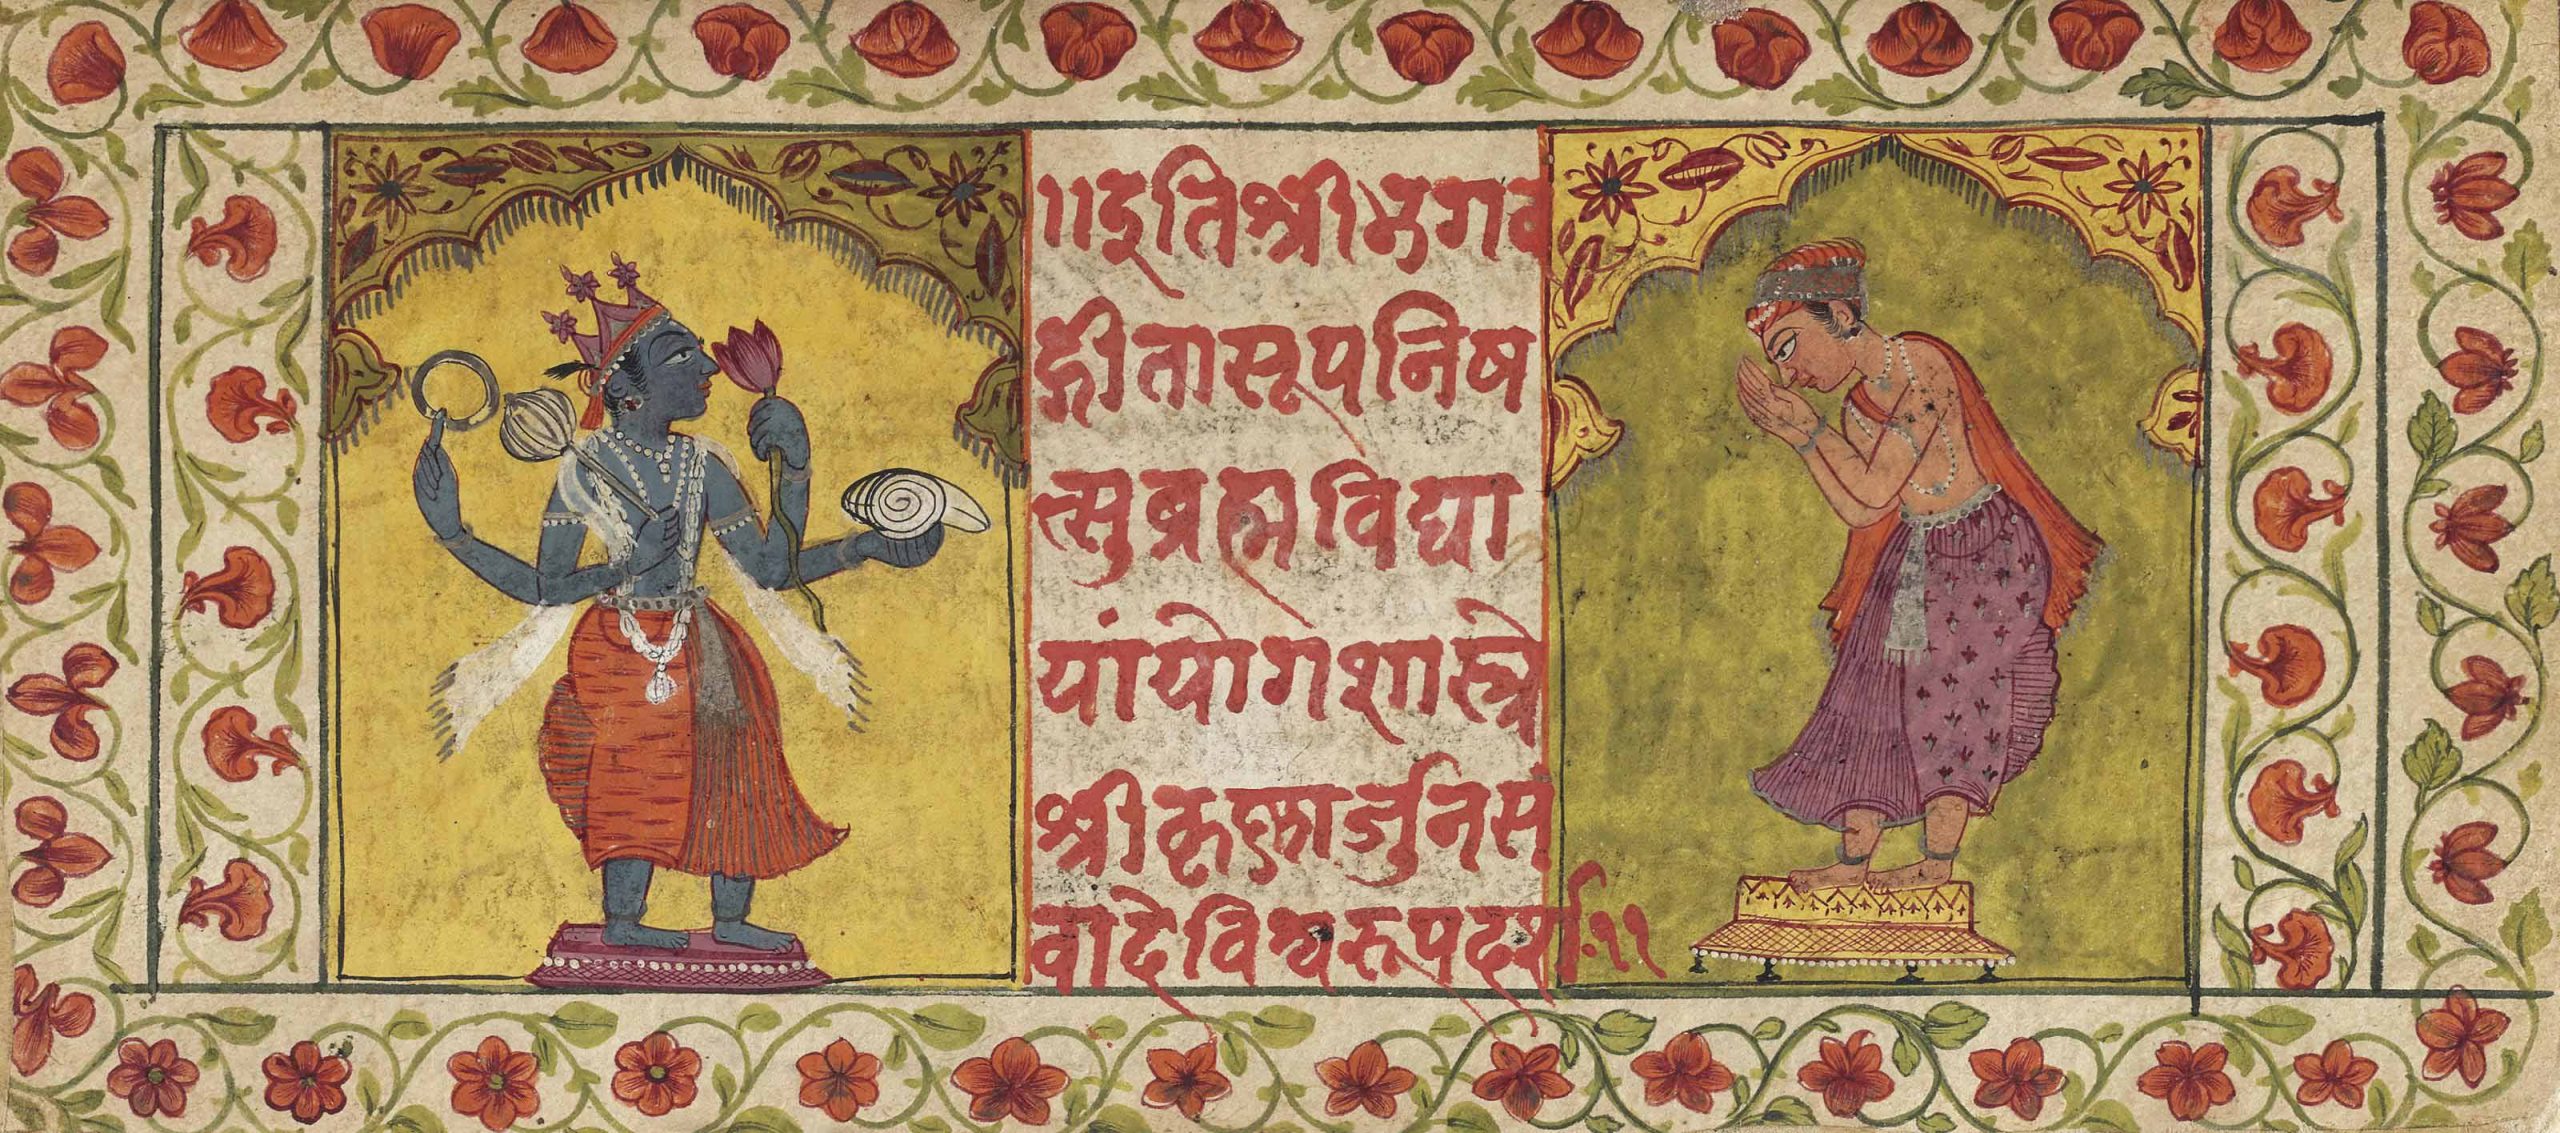 ॥इति श्रीभगव
द्गीतासूपनिष
त्सुब्रह्मविद्या
यांयोगशास्त्रे
श्रीकृष्णार्जुनसं
वादेविश्वरूपदर्श॰११